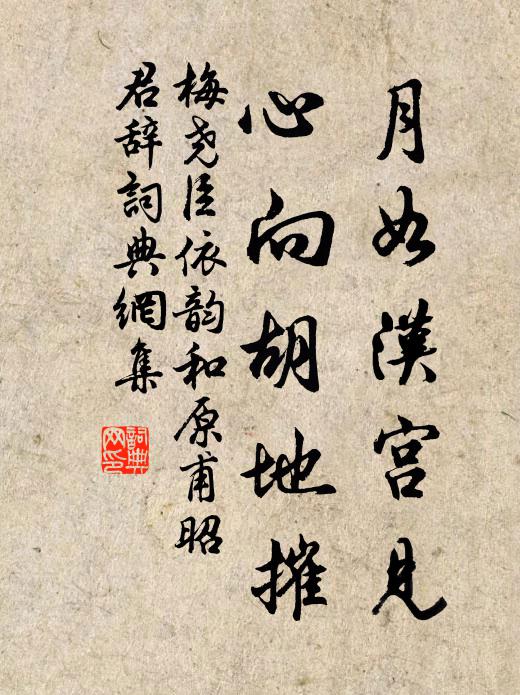 月如漢宮見
心向胡地摧
梅堯臣依韵和原甫昭
君辞詞典網集
詞典網印